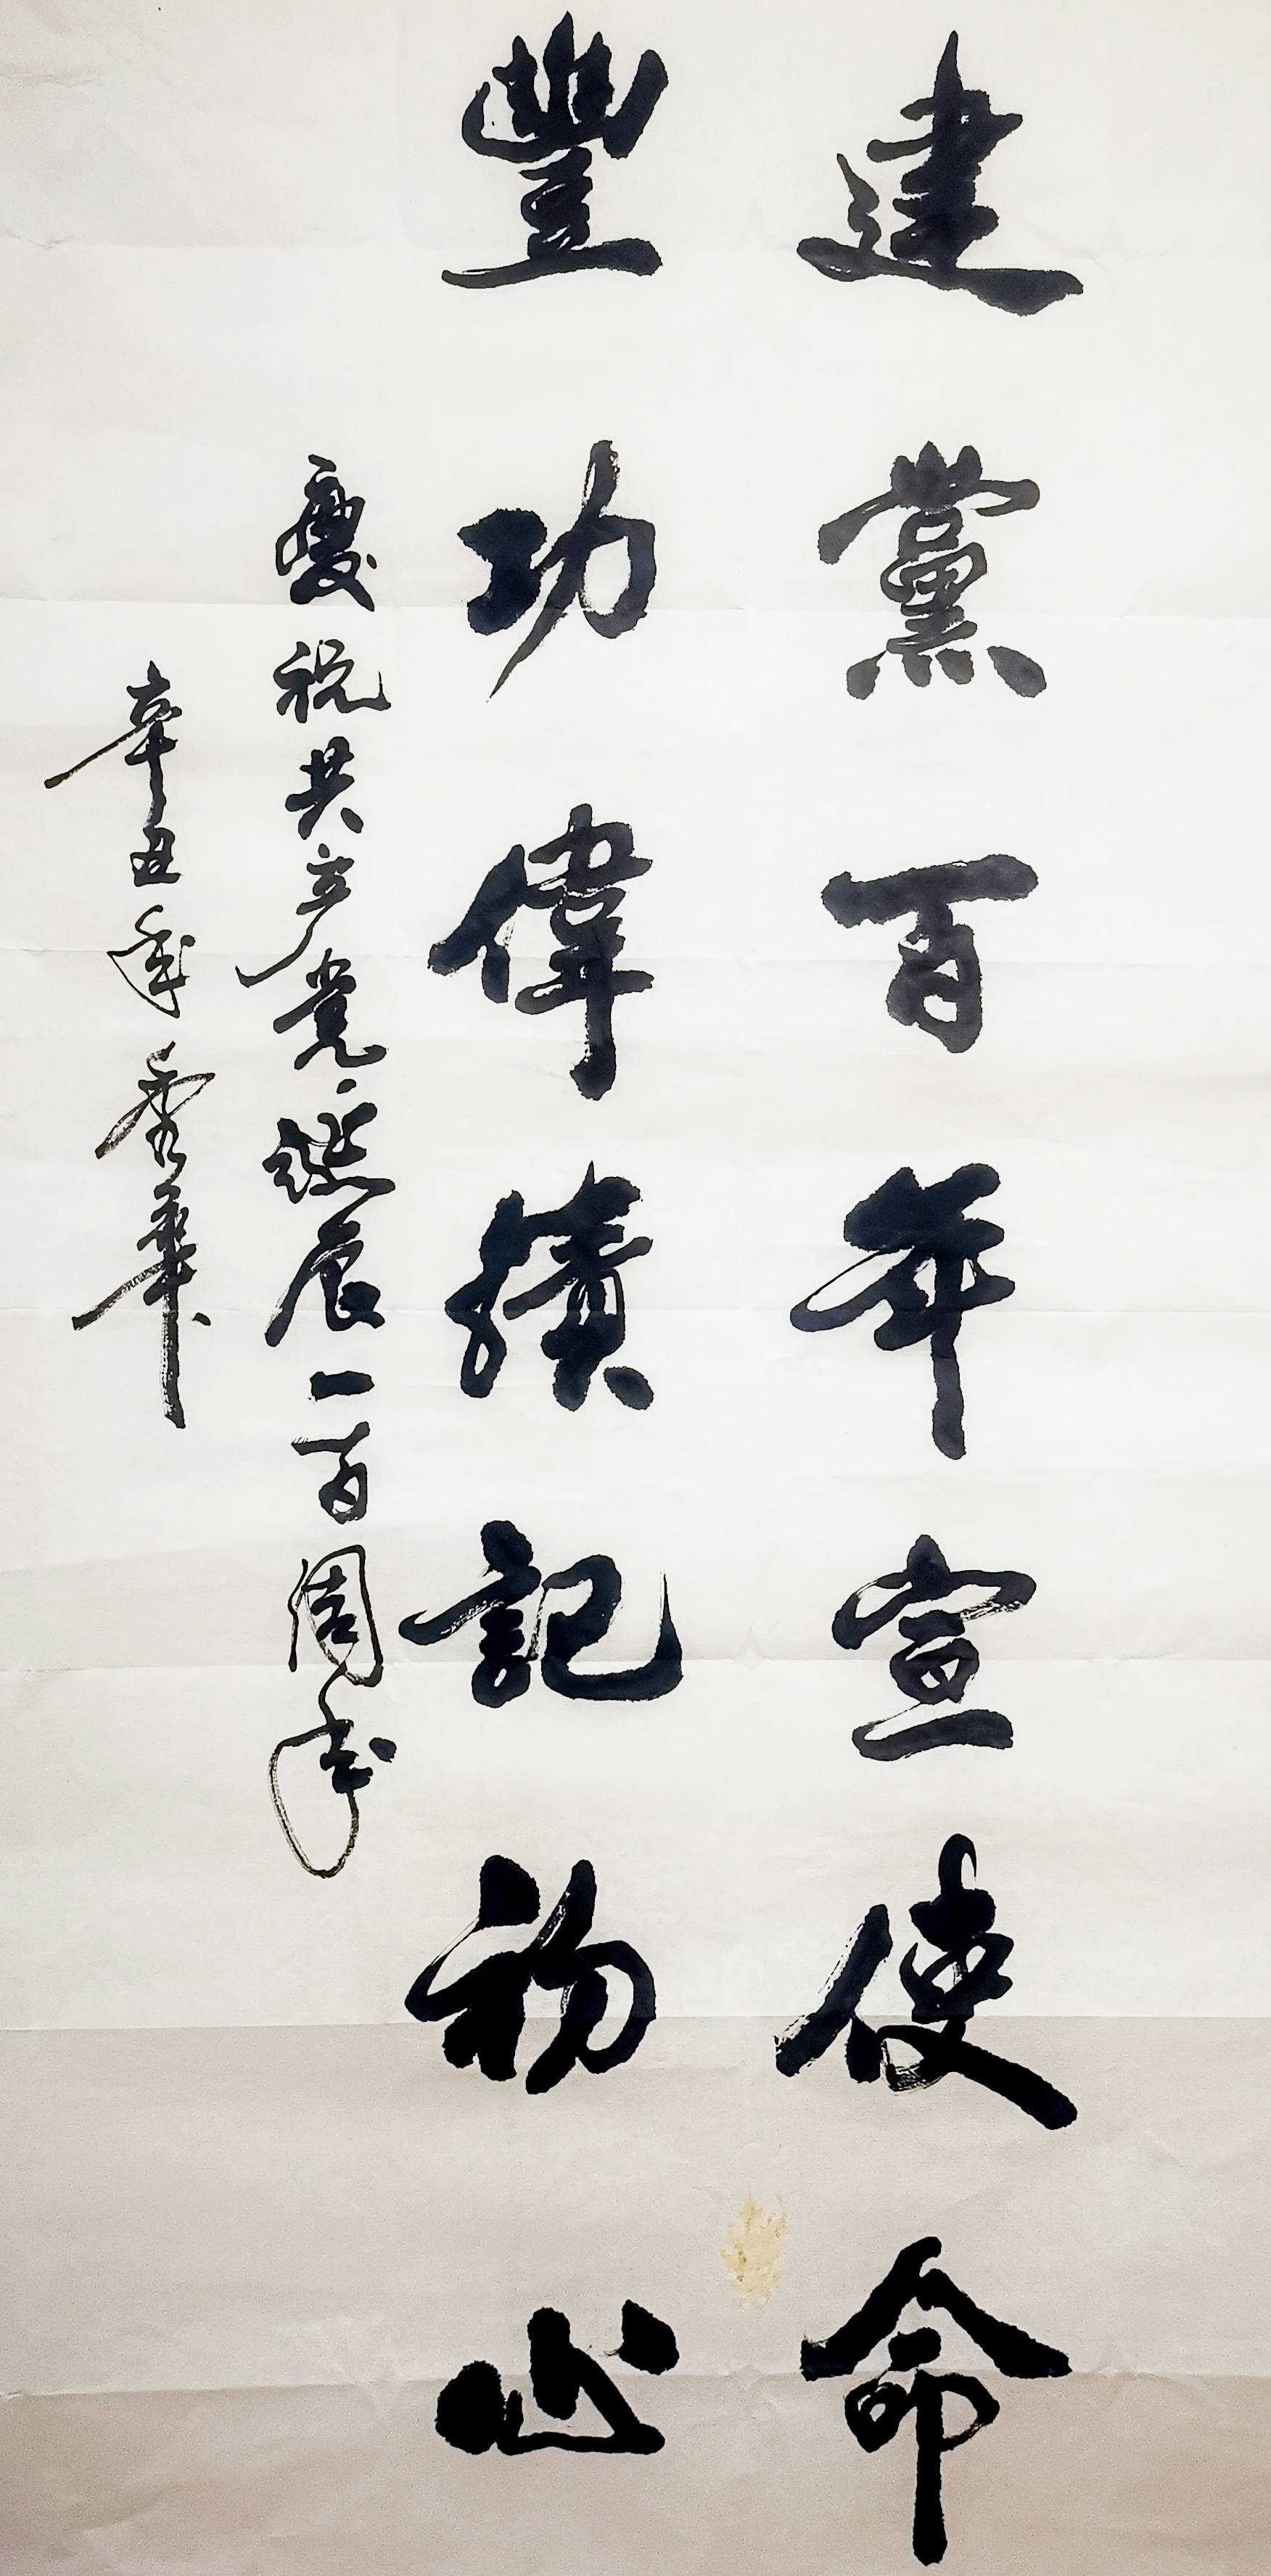 建黨百年宣使命
豐功偉績記初心
慶祝共产党诞辰一百周年
辛丑年秀華